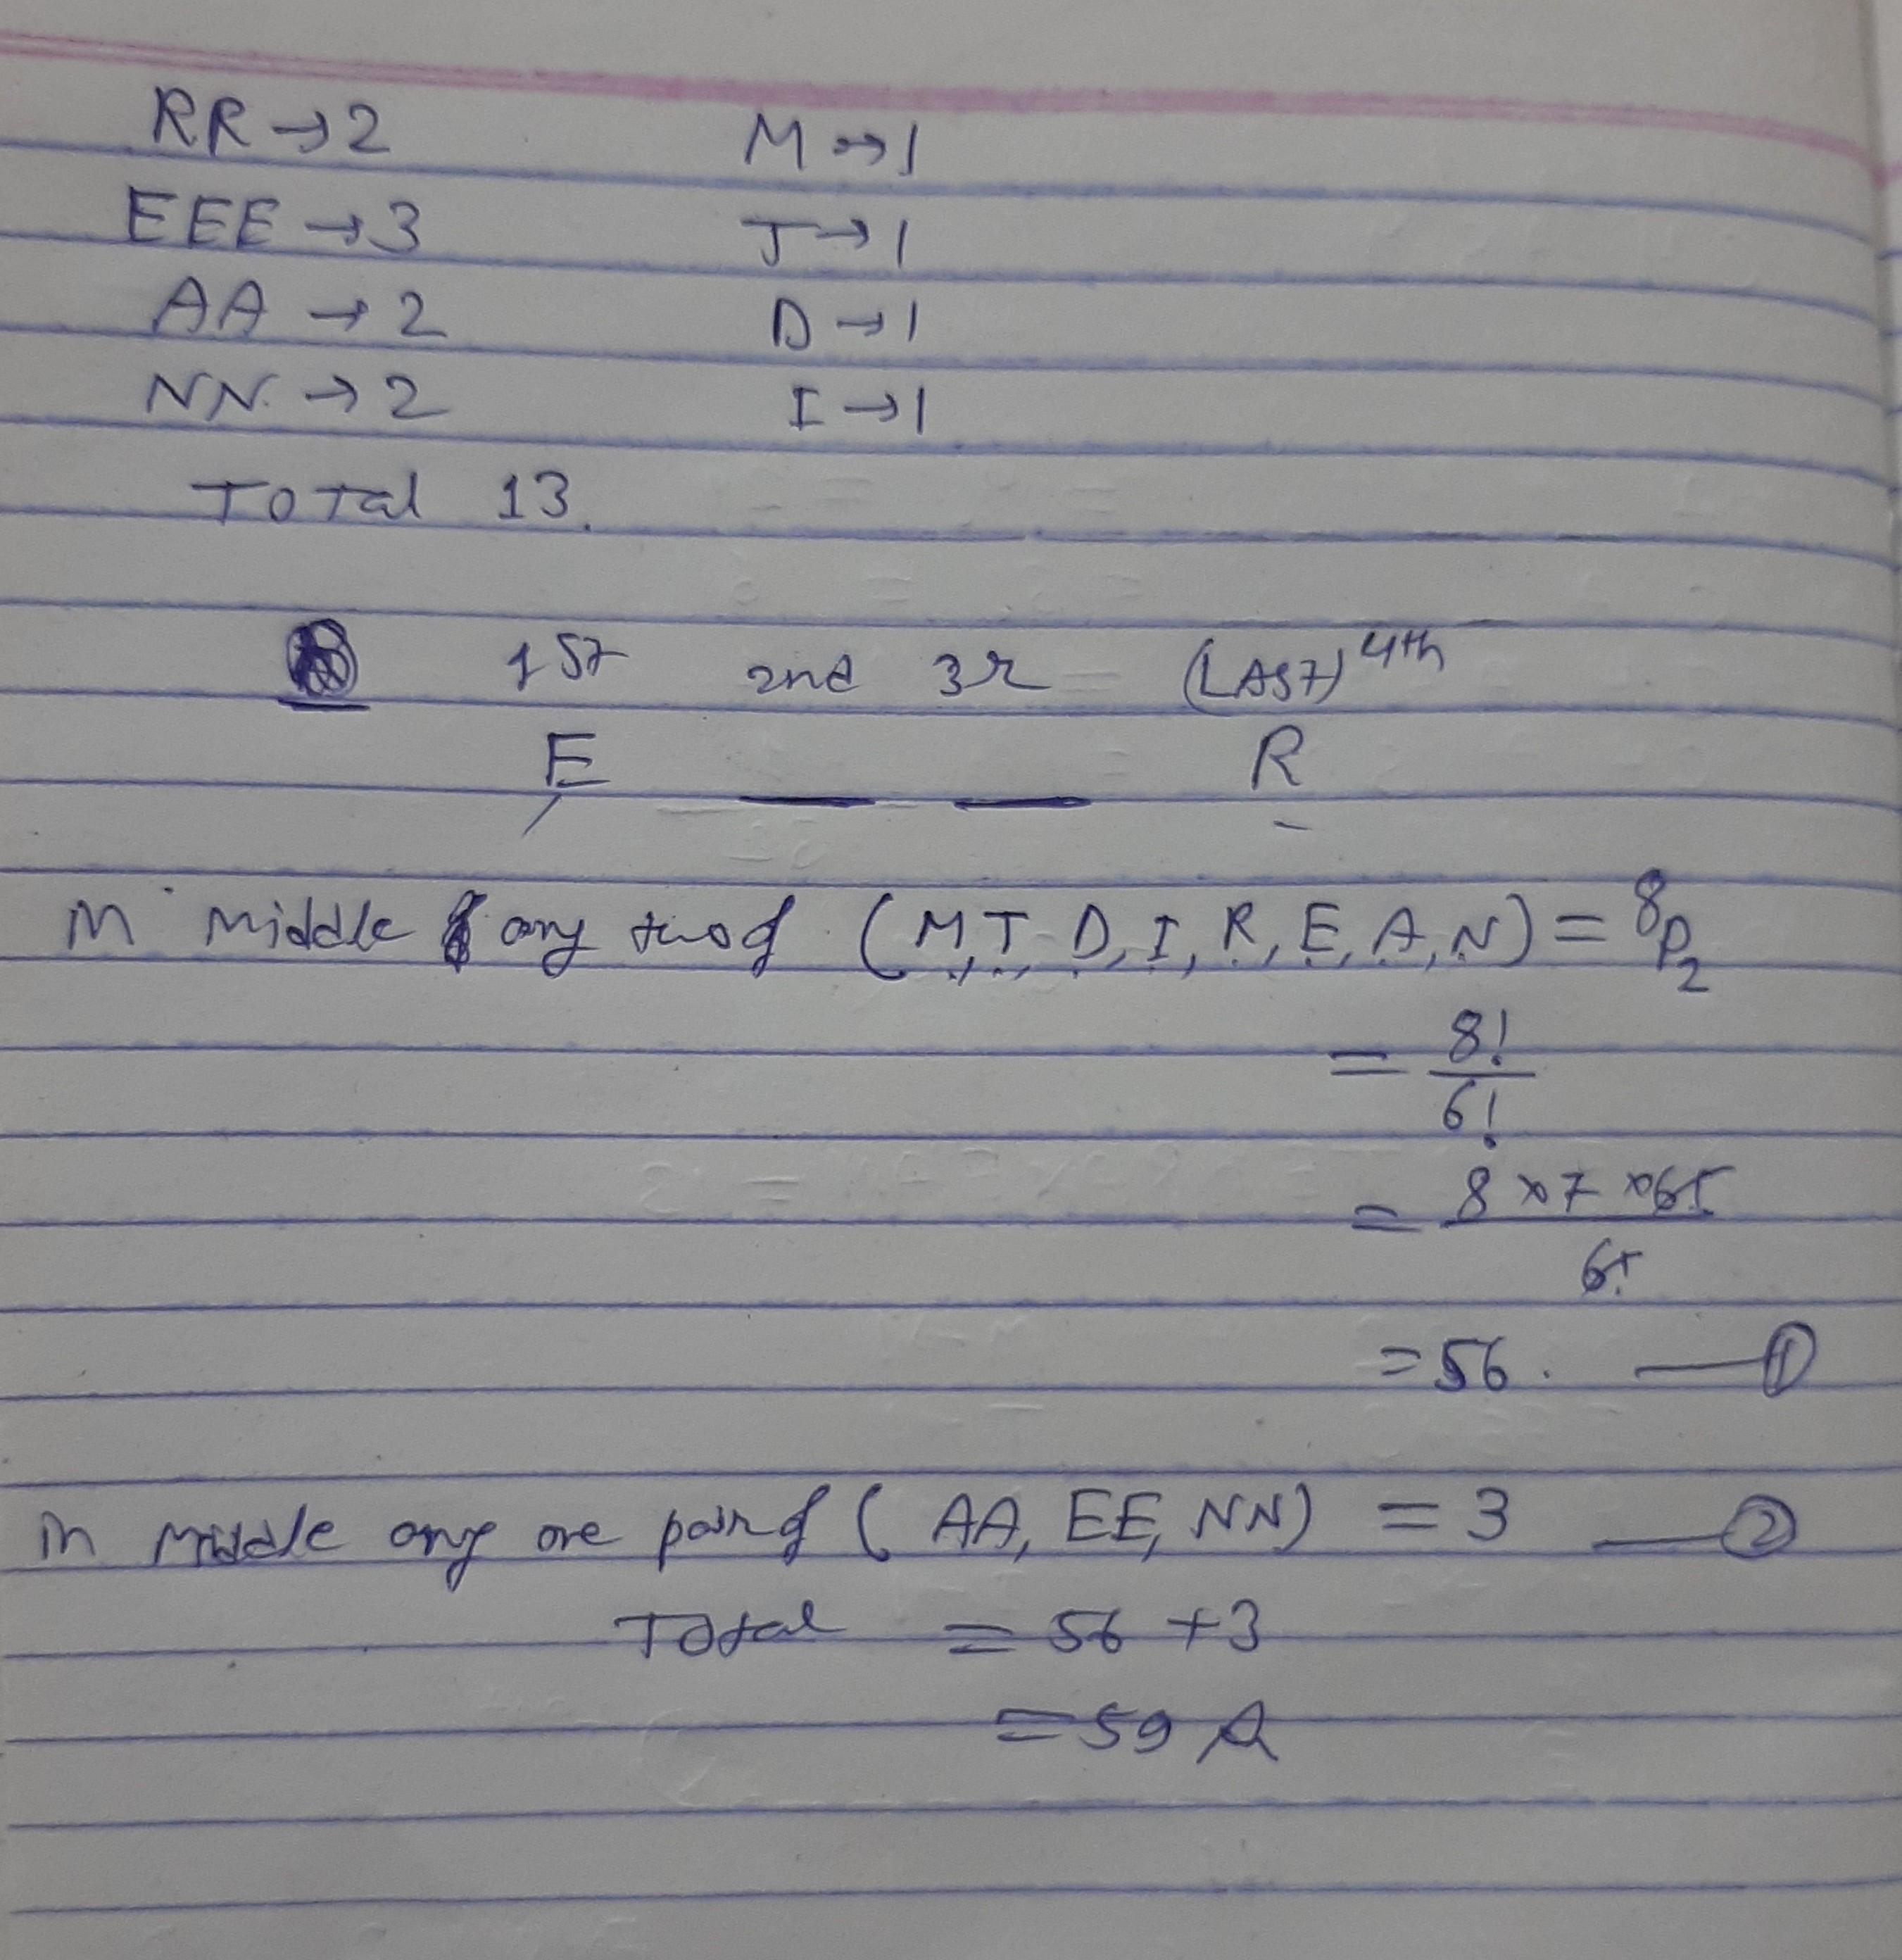 RR → 2 M → 1
EEE → 3 T → 1
AA → 2 D → 1
NN. → 2 I → 1
Total 13.
1st 2nd 3r (LAST) 4th
E _ _ R
in middle any two of (M, T, D, I, R, E, A, N) = 8P2
= 8!/6!
= 8 × 7 × 6!/6!
= 56. — ①
in middle any one pair of (AA, EE, NN) = 3 — ②
Total = 56 + 3
= 59 A